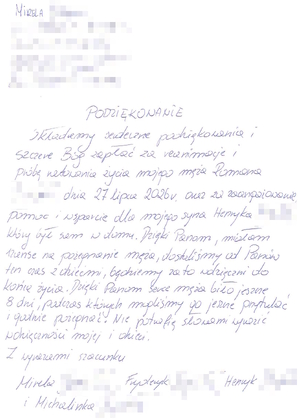 Mirela
PODZIĘKOWANIE
Składamy serdeczne podziękowania i
szczere Bóg zapłać za reanimację i
próbę ratowania życia mojego męża Romana
dnia 27 lipca 2026r. oraz za zaangażowanie,
pomoc i wsparcie dla mojego syna Henryka
który był sam w domu. Dzięki Panom, miałam
szansę na pożegnanie męża, dostaliśmy od Panów
ten czas z dziećmi, będziemy za to wdzięczni do
końca życia. Dzięki Panom serce męża biło jeszcze
8 dni, podczas których mogliśmy go jeszcze przytulać
i godnie pożegnać. Nie potrafię słowami wyrazić
wdzięczności mojej i dzieci.
Z wyrazami szacunku
Mirela Fryderyk Henryk
i Michalinka